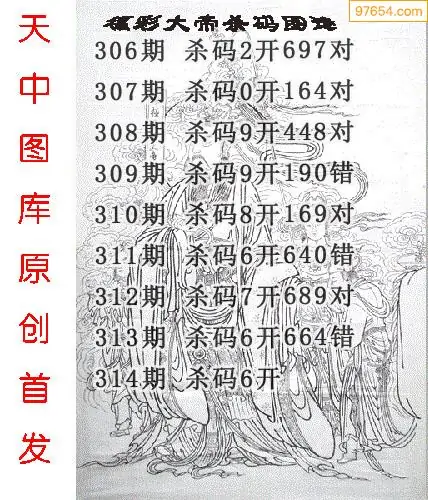 97654.com
福彩大帝杀码图谜
306期 杀码2开697对
307期 杀码0开164对
308期 杀码9开448对
309期 杀码9开190错
310期 杀码8开169对
311期 杀码6开640错
312期 杀码7开689对
313期 杀码6开664错
314期 杀码6开
天中图库原创首发